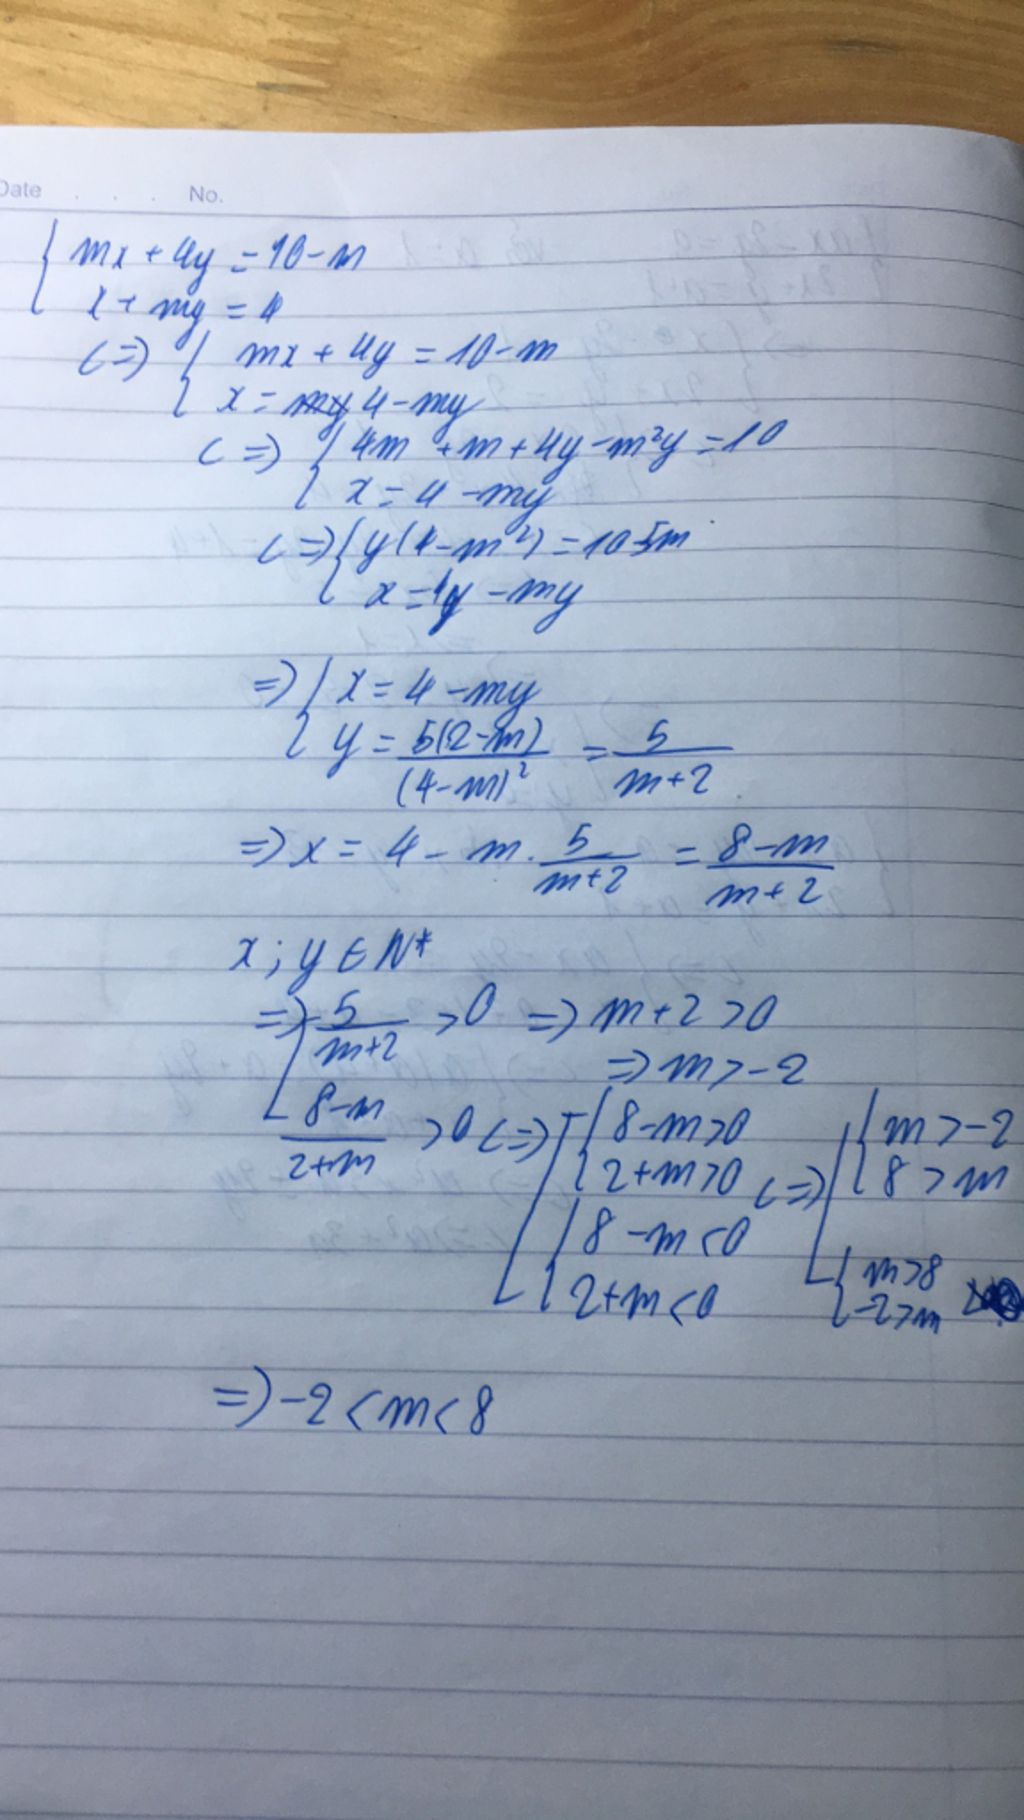 Date . . . No.
{ mx + 4y = 10 - m
x + my = 4
<=> { mx + 4y = 10 - m
x = 4 - my
<=> { 4m + m + 4y - m²y = 10
x = 4 - my
<=> { y(4 - m²) = 10 - 5m
x = 4 - my
=> { x = 4 - my
y = 5(2-m)/(4-m)² = 5/(m+2)
=> x = 4 - m . 5/(m+2) = (8-m)/(m+2)
x ; y ∈ N*
=> [ 5/(m+2) > 0 => m + 2 > 0
=> m > -2
(8-m)/(2+m) > 0 <=> [ { 8 - m > 0 <=> [ { m > -2
2 + m > 0 8 > m
{ 8 - m < 0 { m > 8
2 + m < 0 -2 > m
=> -2 < m < 8